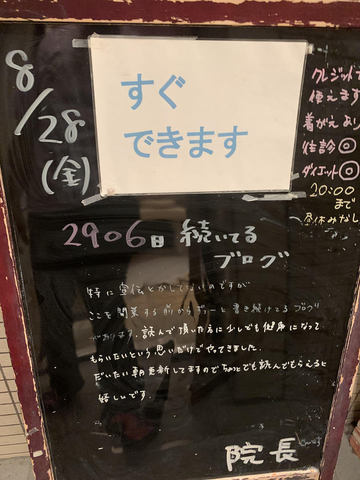 8/28
(金)
すぐ
できます
クレジット
使えます
着がえあり
往診◎
ダイエット◎
20:00
まで
昼休みなし
2906日 続いてる
ブログ
特に宣伝とかしてないのですが
ここを開業する前からずーっと書き続けてるブログ
があります。読んで頂いた方に少しでも健康になって
もらいたいという思いだけでやってきました。
だいたい朝更新してますのでちょっとでも読んでもらえると
嬉しいです。
院長